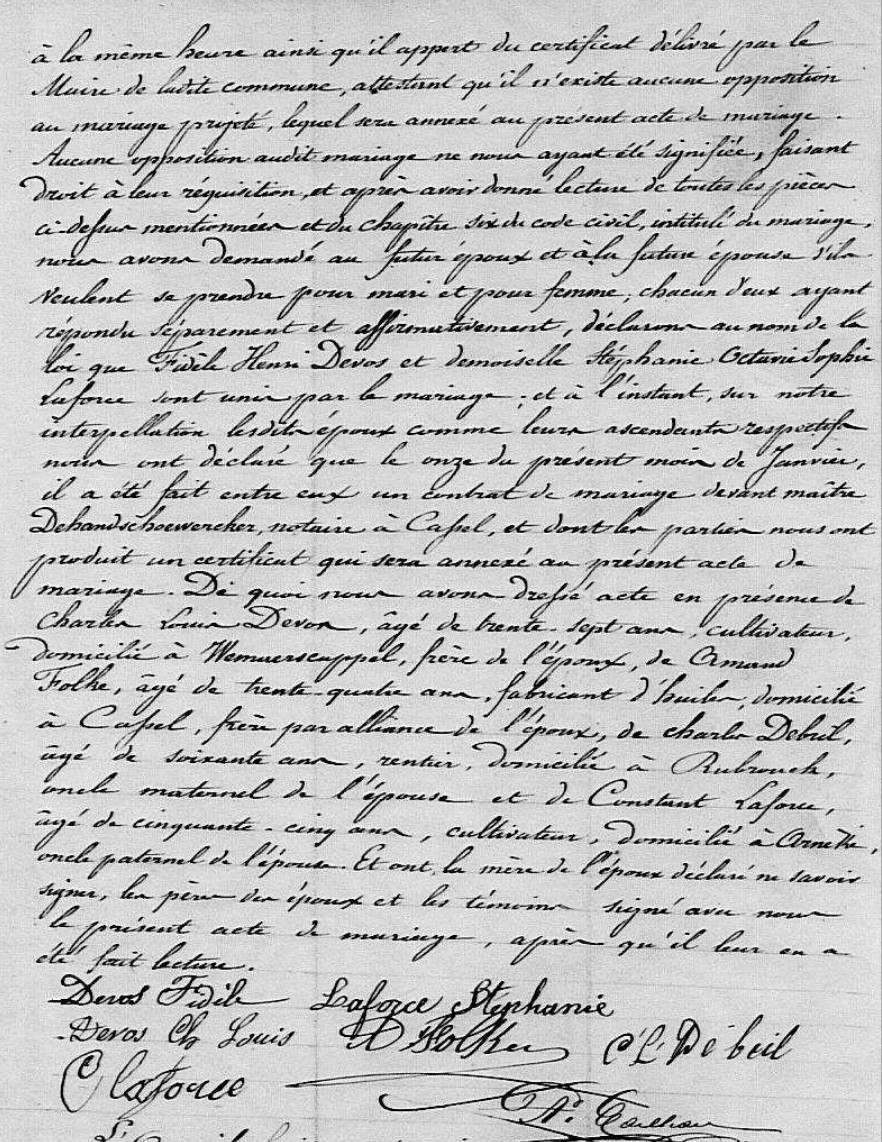 à la même heure ainsi qu'il appert du certificat délivré par le
Maire de ladite commune, attestant qu'il n'existe aucune opposition
au mariage projeté, lequel sera annexé au présent acte de mariage.
Aucune opposition audit mariage ne nous ayant été signifiée, faisant
droit à leur réquisition, et après avoir donné lecture de toutes les pièces
ci-dessus mentionnées et du chapitre six du code civil, intitulé du mariage,
nous avons demandé au futur époux et à la future épouse s'ils
veulent se prendre pour mari et pour femme, chacun d'eux ayant
répondu séparément et affirmativement, déclarons au nom de la
loi que Fidèle Henri Devos et demoiselle Stéphanie Octavie Sophie
Laforce sont unis par le mariage ; et à l'instant, sur notre
interpellation lesdits époux comme leurs ascendants respectifs
nous ont déclaré que le onze du présent mois de Janvier,
il a été fait entre eux un contrat de mariage devant maître
Dehandschoewercker, notaire à Cassel, et dont les parties nous ont
produit un certificat qui sera annexé au présent acte de
mariage. De quoi nous avons dressé acte en présence de
Charles Louis Devos, âgé de trente-sept ans, cultivateur,
domicilié à Wemaerscappel, frère de l'époux, de Amand
Folke, âgé de trente-quatre ans, fabricant d'huiles, domicilié
à Cassel, frère par alliance de l'époux, de Charles Debeil,
âgé de soixante ans, rentier, domicilié à Rubrouck,
oncle maternel de l'épouse et de Constant Laforce,
âgé de cinquante-cinq ans, cultivateur, domicilié à Arnèke,
oncle paternel de l'épouse. Et ont, la mère de l'époux déclaré ne savoir
signer, les pères des époux et les témoins signé avec nous
le présent acte de mariage, après qu'il leur en a
été fait lecture.
Devos Fidèle Laforce Stéphanie
Devos Ch Louis A Folke C L Débeil
C laforce